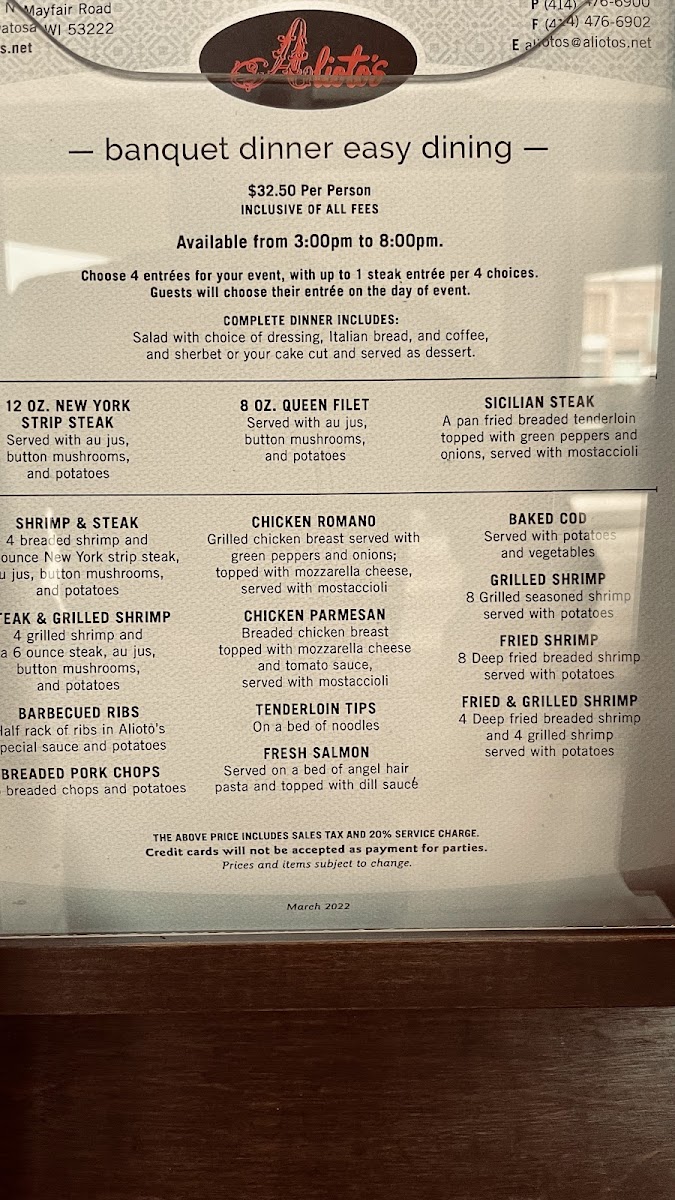 N Mayfair Road
WI 53222
s.net
Alioto's
P (414) 476-6900
F (414) 476-6902
E aliotos@aliotos.net
— banquet dinner easy dining —
$32.50 Per Person
INCLUSIVE OF ALL FEES
Available from 3:00pm to 8:00pm.
Choose 4 entrées for your event, with up to 1 steak entrée per 4 choices.
Guests will choose their entrée on the day of event.
COMPLETE DINNER INCLUDES:
Salad with choice of dressing, Italian bread, and coffee,
and sherbet or your cake cut and served as dessert.
12 OZ. NEW YORK
STRIP STEAK
Served with au jus,
button mushrooms,
and potatoes
8 OZ. QUEEN FILET
Served with au jus,
button mushrooms,
and potatoes
SICILIAN STEAK
A pan fried breaded tenderloin
topped with green peppers and
onions, served with mostaccioli
SHRIMP & STEAK
4 breaded shrimp and
ounce New York strip steak,
u jus, button mushrooms,
and potatoes
TEAK & GRILLED SHRIMP
4 grilled shrimp and
a 6 ounce steak, au jus,
button mushrooms,
and potatoes
BARBECUED RIBS
Half rack of ribs in Alioto's
pecial sauce and potatoes
BREADED PORK CHOPS
breaded chops and potatoes
CHICKEN ROMANO
Grilled chicken breast served with
green peppers and onions;
topped with mozzarella cheese,
served with mostaccioli
CHICKEN PARMESAN
Breaded chicken breast
topped with mozzarella cheese
and tomato sauce,
served with mostaccioli
TENDERLOIN TIPS
On a bed of noodles
FRESH SALMON
Served on a bed of angel hair
pasta and topped with dill sauce
BAKED COD
Served with potatoes
and vegetables
GRILLED SHRIMP
8 Grilled seasoned shrimp
served with potatoes
FRIED SHRIMP
8 Deep fried breaded shrimp
served with potatoes
FRIED & GRILLED SHRIMP
4 Deep fried breaded shrimp
and 4 grilled shrimp
served with potatoes
THE ABOVE PRICE INCLUDES SALES TAX AND 20% SERVICE CHARGE.
Credit cards will not be accepted as payment for parties.
Prices and items subject to change.
March 2022